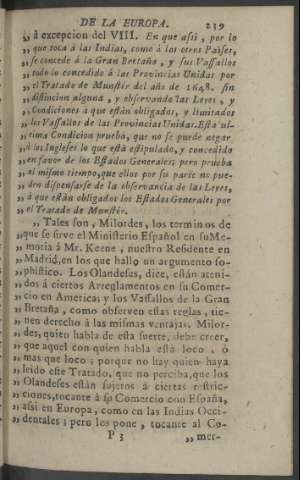 DE LA EUROPA. 239
,, à excepcion del VIII. En que assi, por lo
,, que toca à las Indias, como à los otros Paìses,
,, se concede à la Gran Bretaña, y sus Vassallos
,, todo lo concedido à las Provincias Unidas por
,, el Tratado de Munstèr del año de 1648. sin
,, distincion alguna, y observando las Leyes, y
,, Condiciones à que estàn obligados, y limitados
,, los Vassallos de las Provincias Unidas. Esta ul-
,, tima Condicion prueba, que no se puede negar
,, à los Ingleses lo que està estipulado, y concedido
,, en favor de los Estados Generales; pero prueba
,, al mismo tiempo, que ellos por su parte no pue-
,, den dispensarse de la observancia de las Leyes,
,, à que estàn obligados los Estados Generales por
,, el Tratado de Munstèr.
,, Tales son, Milordes, los terminos de
,, que se sirve el Ministerio Español en su Me-
,, moria à Mr. Keene, nuestro Residente en
,, Madrid, en los que hallo un argumento so-
,, phistico. Los Olandeses, dice, estàn ateni-
,, dos à ciertos Arreglamentos en su Comer-
,, cio en America; y los Vassallos de la Gran
,, Bretaña, como observen estas reglas, tie-
,, nen derecho à las mismas ventajas. Milor-
,, des, quien habla de esta suerte, debe creer,
,, que aquel con quien habla està loco, ò
,, mas que loco; porque no hay quien haya
,, leìdo este Tratado, que no perciba, que los
,, Olandeses estàn sujetos à ciertas restric-
,, ciones, tocante à su Comercio con España,
,, assi en Europa, como en las Indias Occi-
,, dentales; pero los pone, tocante al Co-
P 3 ,, mer-